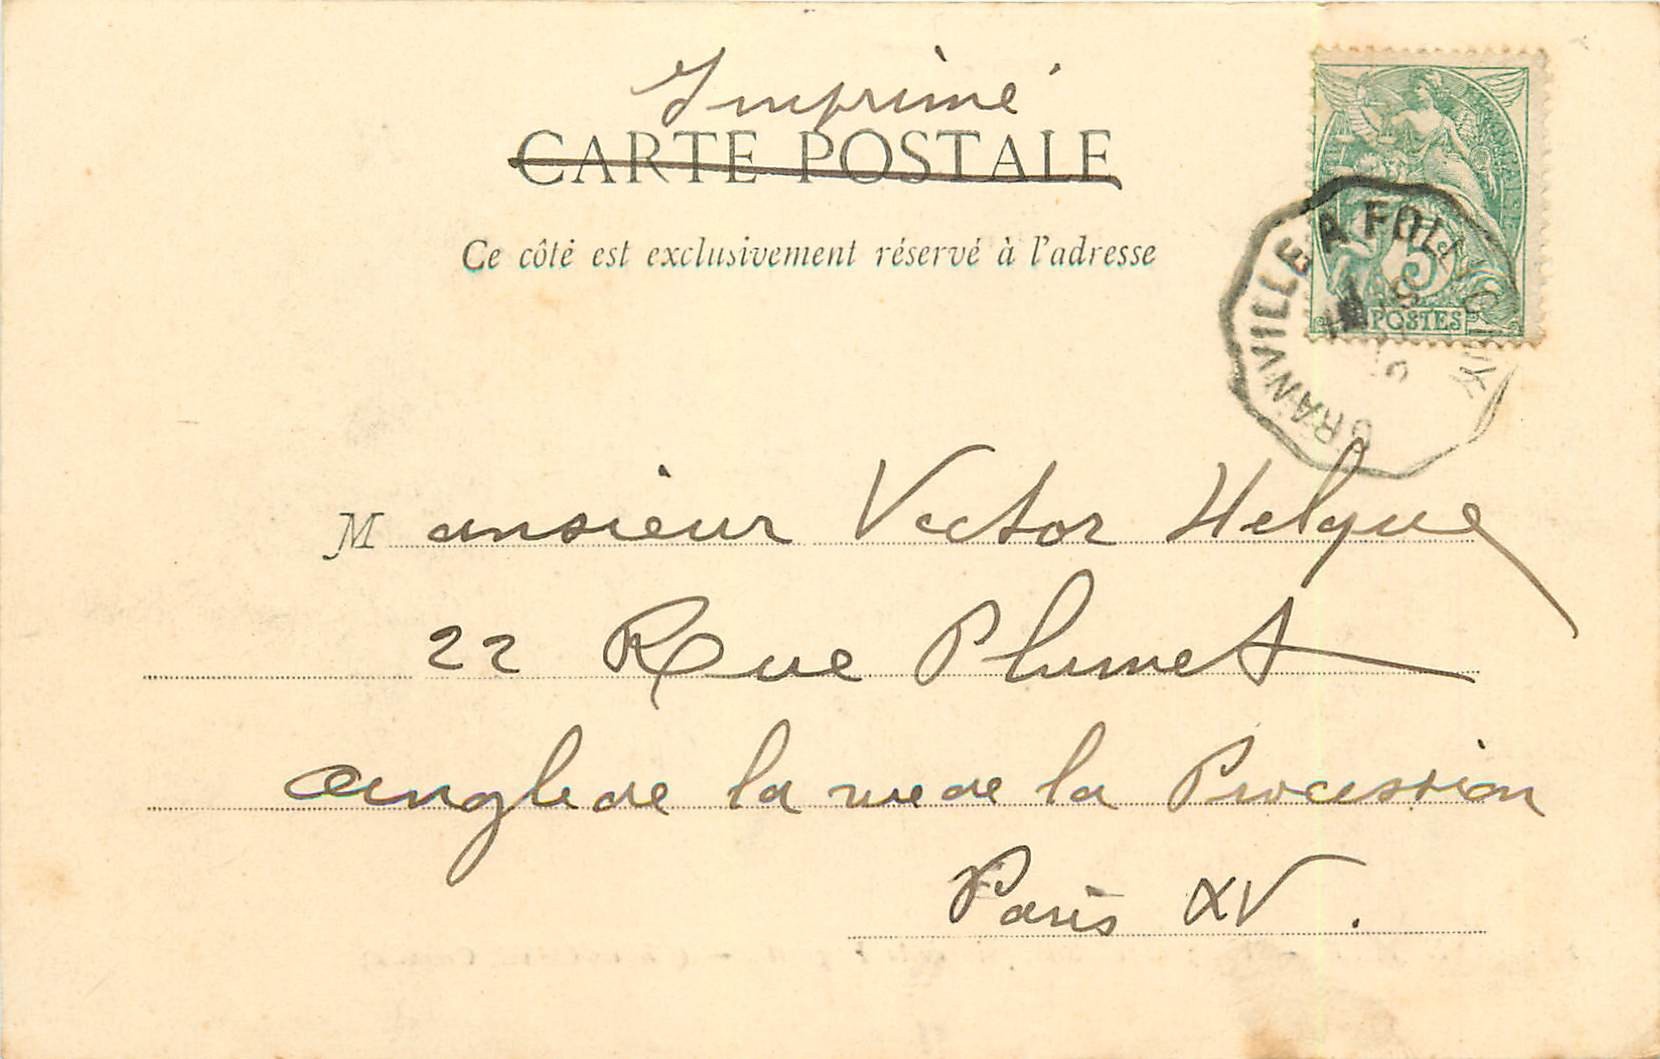 Imprimé
CARTE POSTALE
Ce côté est exclusivement réservé à l'adresse
GRANVILLE A FOLLIGNY
5
POSTES
Monsieur Victor Helque
22 Rue Plumet
angle de la rue de la Procession
Paris XV.